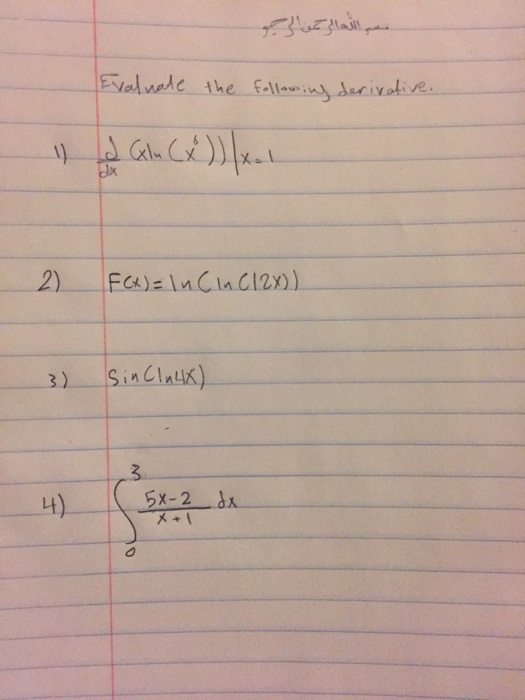 بسم الله الرحمن الرحيم
Evaluate the following derivative.
1) d/dx (xln(x⁶))|x=1
2) F(x)=ln(ln(12x))
3) Sin(ln4x)
4) ∫₀³ (5x-2)/(x+1) dx